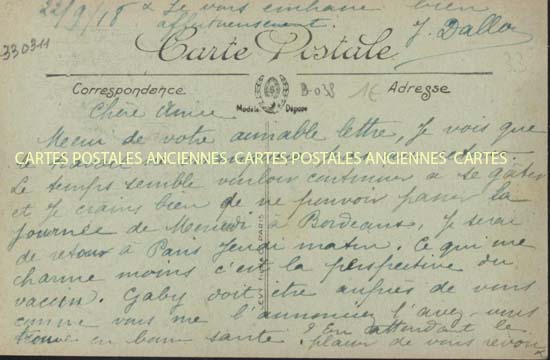 22/9/18 & Je vous embrasse bien
affectueusement. J. Dallo
33031
Carte Postale
B-038 1€
Correspondance Adresse
Modèle Déposé
Chère Amie
Merci de votre aimable lettre, je vois que
CARTES POSTALES ANCIENNES CARTES POSTALES ANCIENNES CARTES
Le temps semble vouloir continuer à se gâter
et je crains bien de ne pouvoir passer la
journée de Mercredi à Bordeaux, je serai
de retour à Paris Jeudi matin. Ce qui me
charme moins c'est la perspective du
vaccin. Gaby doit être auprès de vous
comme vous me l'annonciez l'avez-vous
trouvé en bonne santé ? En attendant le
plaisir de vous revoir